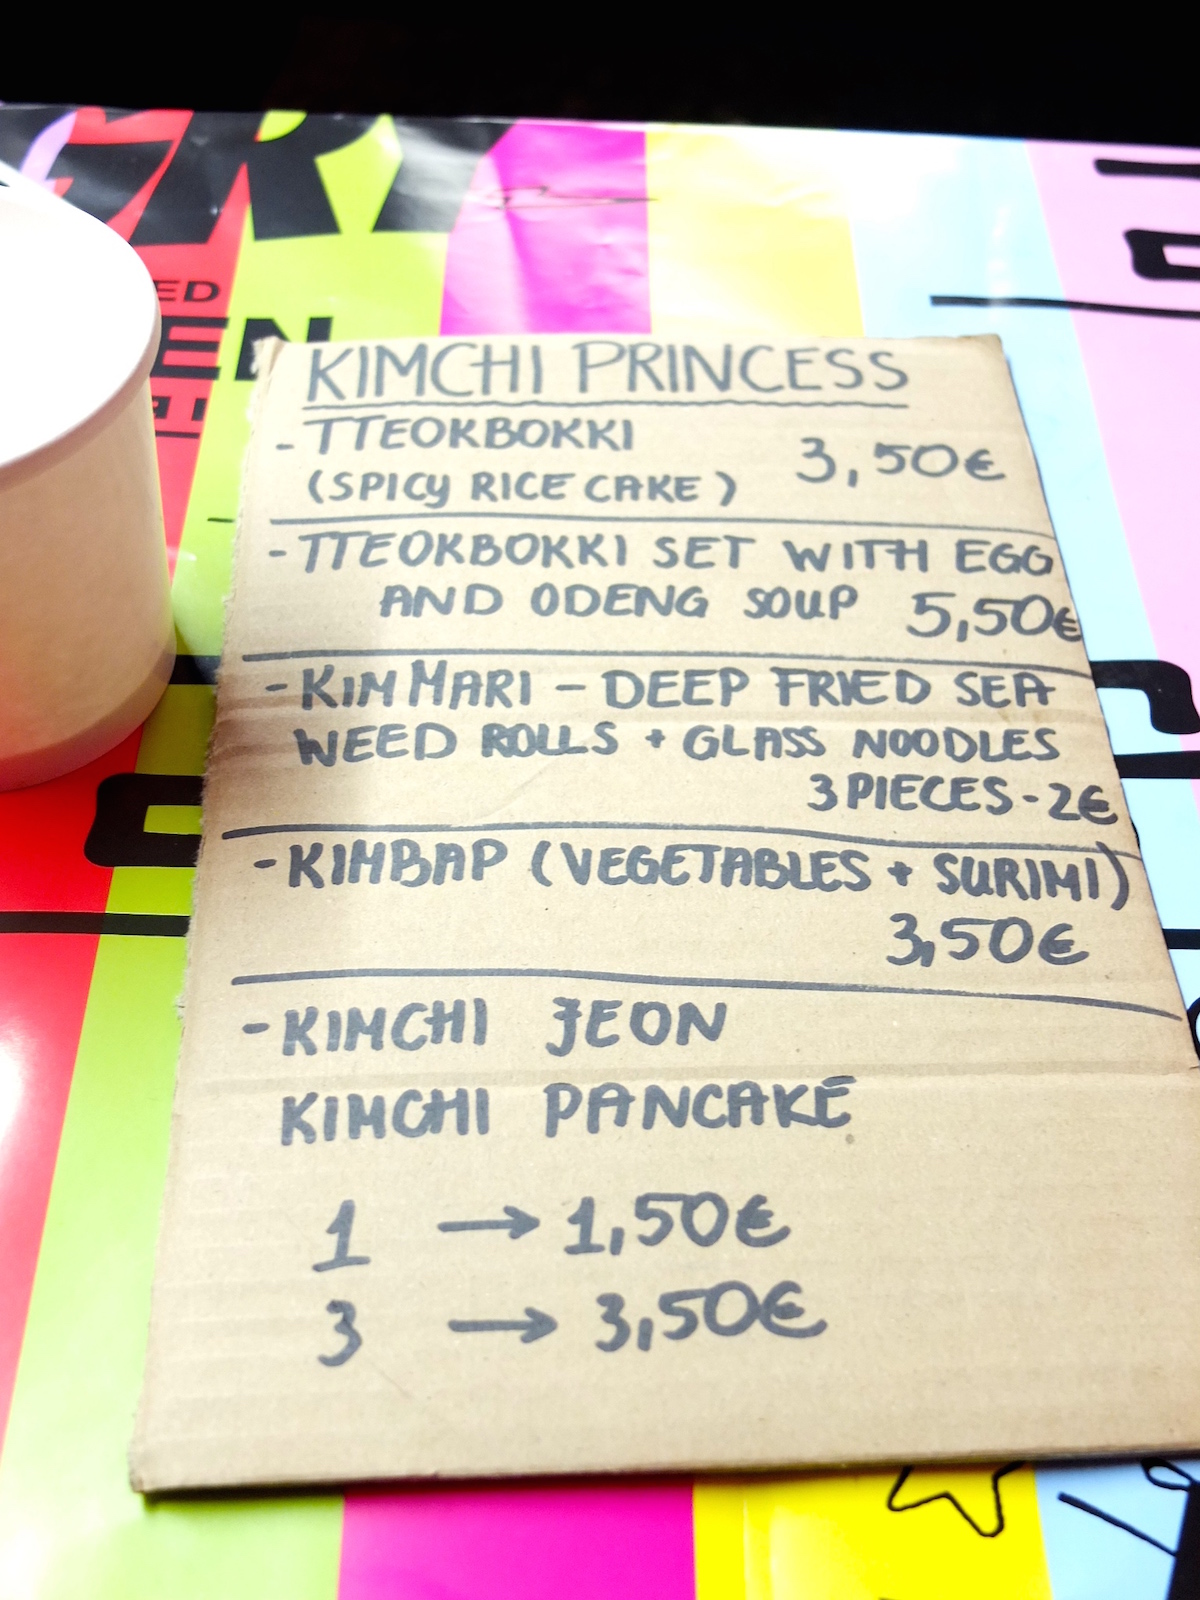 KIMCHI PRINCESS
- TTEOKBOKKI
(SPICY RICE CAKE) 3,50€
- TTEOKBOKKI SET WITH EGG
AND ODENG SOUP 5,50€
- KIM MARI - DEEP FRIED SEA
WEED ROLLS + GLASS NOODLES
3 PIECES - 2€
- KIMBAP (VEGETABLES + SURIMI)
3,50€
- KIMCHI JEON
KIMCHI PANCAKE
1 → 1,50€
3 → 3,50€